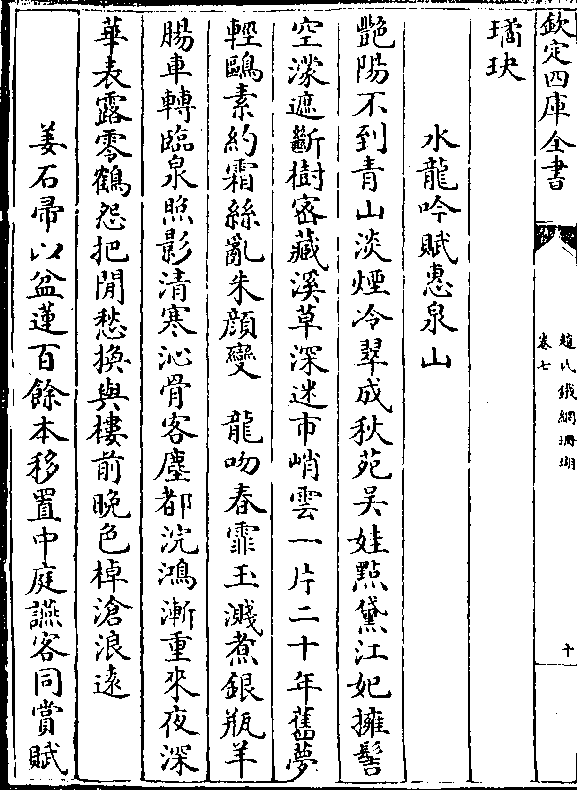 欽定四庫全書
趙氏鐵網珊瑚
卷七
十
璚玦
水龍吟賦惠泉山
艷陽不到青山淡煙冷翠成秋苑吳娃點黛江妃擁髻
空濛遮斷樹宻藏溪草深迷市峭雲一片二十年舊夢
輕鷗素約霜絲亂朱顔變　龍吻春霏玉濺煮銀瓶羊
腸車轉臨泉照影清寒沁骨客塵都浣鴻漸重來夜深
華表露零鶴怨把閒愁換與樓前晚色棹滄浪逺
姜石帚以盆蓮百餘本移置中庭讌客同賞賦